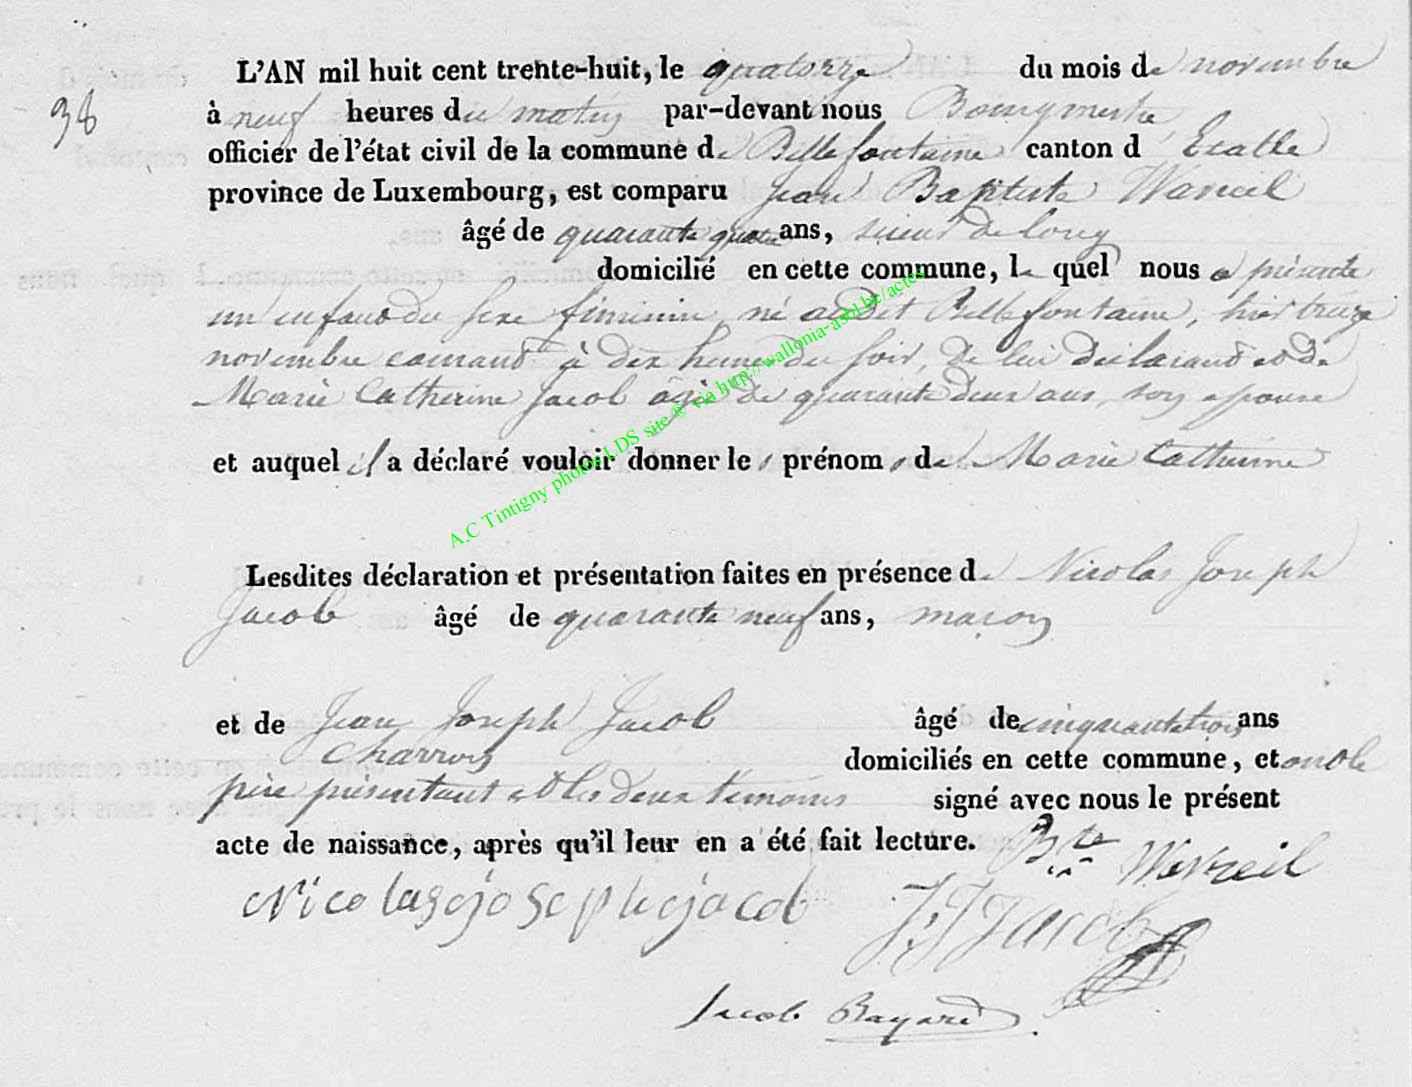 L'AN mil huit cent trente-huit, le quatorze du mois de novembre
38
à neuf heures du matin par-devant nous Bourgmestre
officier de l'état civil de la commune de Bellefontaine canton d Etalle
province de Luxembourg, est comparu Jean Baptiste Wavreil
âgé de quarante quatre ans, scieur de long
domicilié en cette commune, le quel nous a présenté
un enfant du sexe féminin, né audit Bellefontaine, hier treize
novembre courant à dix heures du soir, de lui déclarant et de
Marie Catherine Jacob âgée de quarante deux ans, son épouse
et auquel il a déclaré vouloir donner les prénoms de Marie Catherine
Lesdites déclaration et présentation faites en présence de Nicolas Joseph
Jacob âgé de quarante neuf ans, maçon
et de Jean Joseph Jacob âgé de cinquante trois ans
charron domiciliés en cette commune, et ont le
père présentant et les deux témoins signé avec nous le présent
acte de naissance, après qu'il leur en a été fait lecture. Bte Wavreil
Nicolas joseph jacob J J Jacob
Jacob Bayard
A.C Tintigny photos LDS site ® via http://wallonia-asbl.be/actes